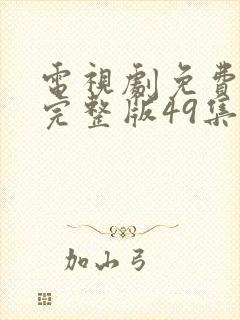 電視劇免費
完整版49集
加山弓